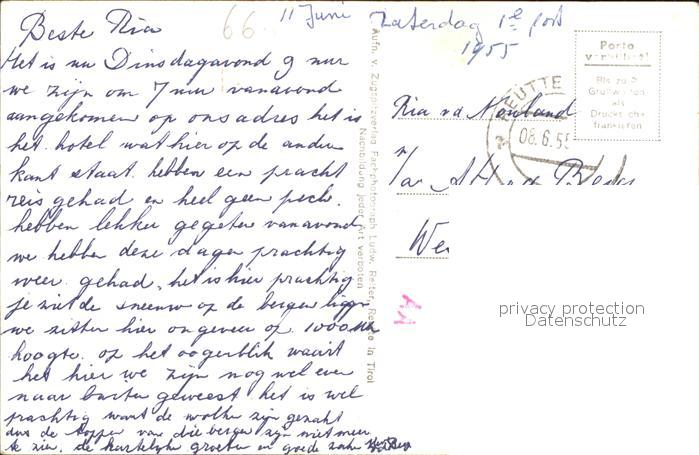 11 Juni Zaterdag 1e post
1955
66
Beste Ria
Het is nu Dinsdagavond 9 uur
we zijn om 7 uur vanavond
aangekomen op ons adres het is
het hotel wat hier op de andere
kant staat. hebben een pracht
reis gehad en heel geen pech.
hebben lekker gegeten vanavond
we hebben deze dagen prachtig
weer gehad, het is hier prachtig
je ziet de sneeuw op de bergen liggen
we zitten hier ongeveer op 1000 M
hoogte. op het oogenblik waait
het hier we zijn nog wel even
naar buiten geweest het is wel
prachtig want de wolken zijn gezakt
dus de toppen van die bergen zijn niet meer
te zien. de hartelijke groeten en goede
Aufn. v. Zugspitzverlag Fachphotograph Ludw. Reiter, Reutte in Tirol
Nachbildung jeder Art verboten
Porto
Bis zu 5
Grußworten
als
Drucksache
frankieren
REUTTE
08.6.55
Ria vd
We
privacy protection
Datenschutz